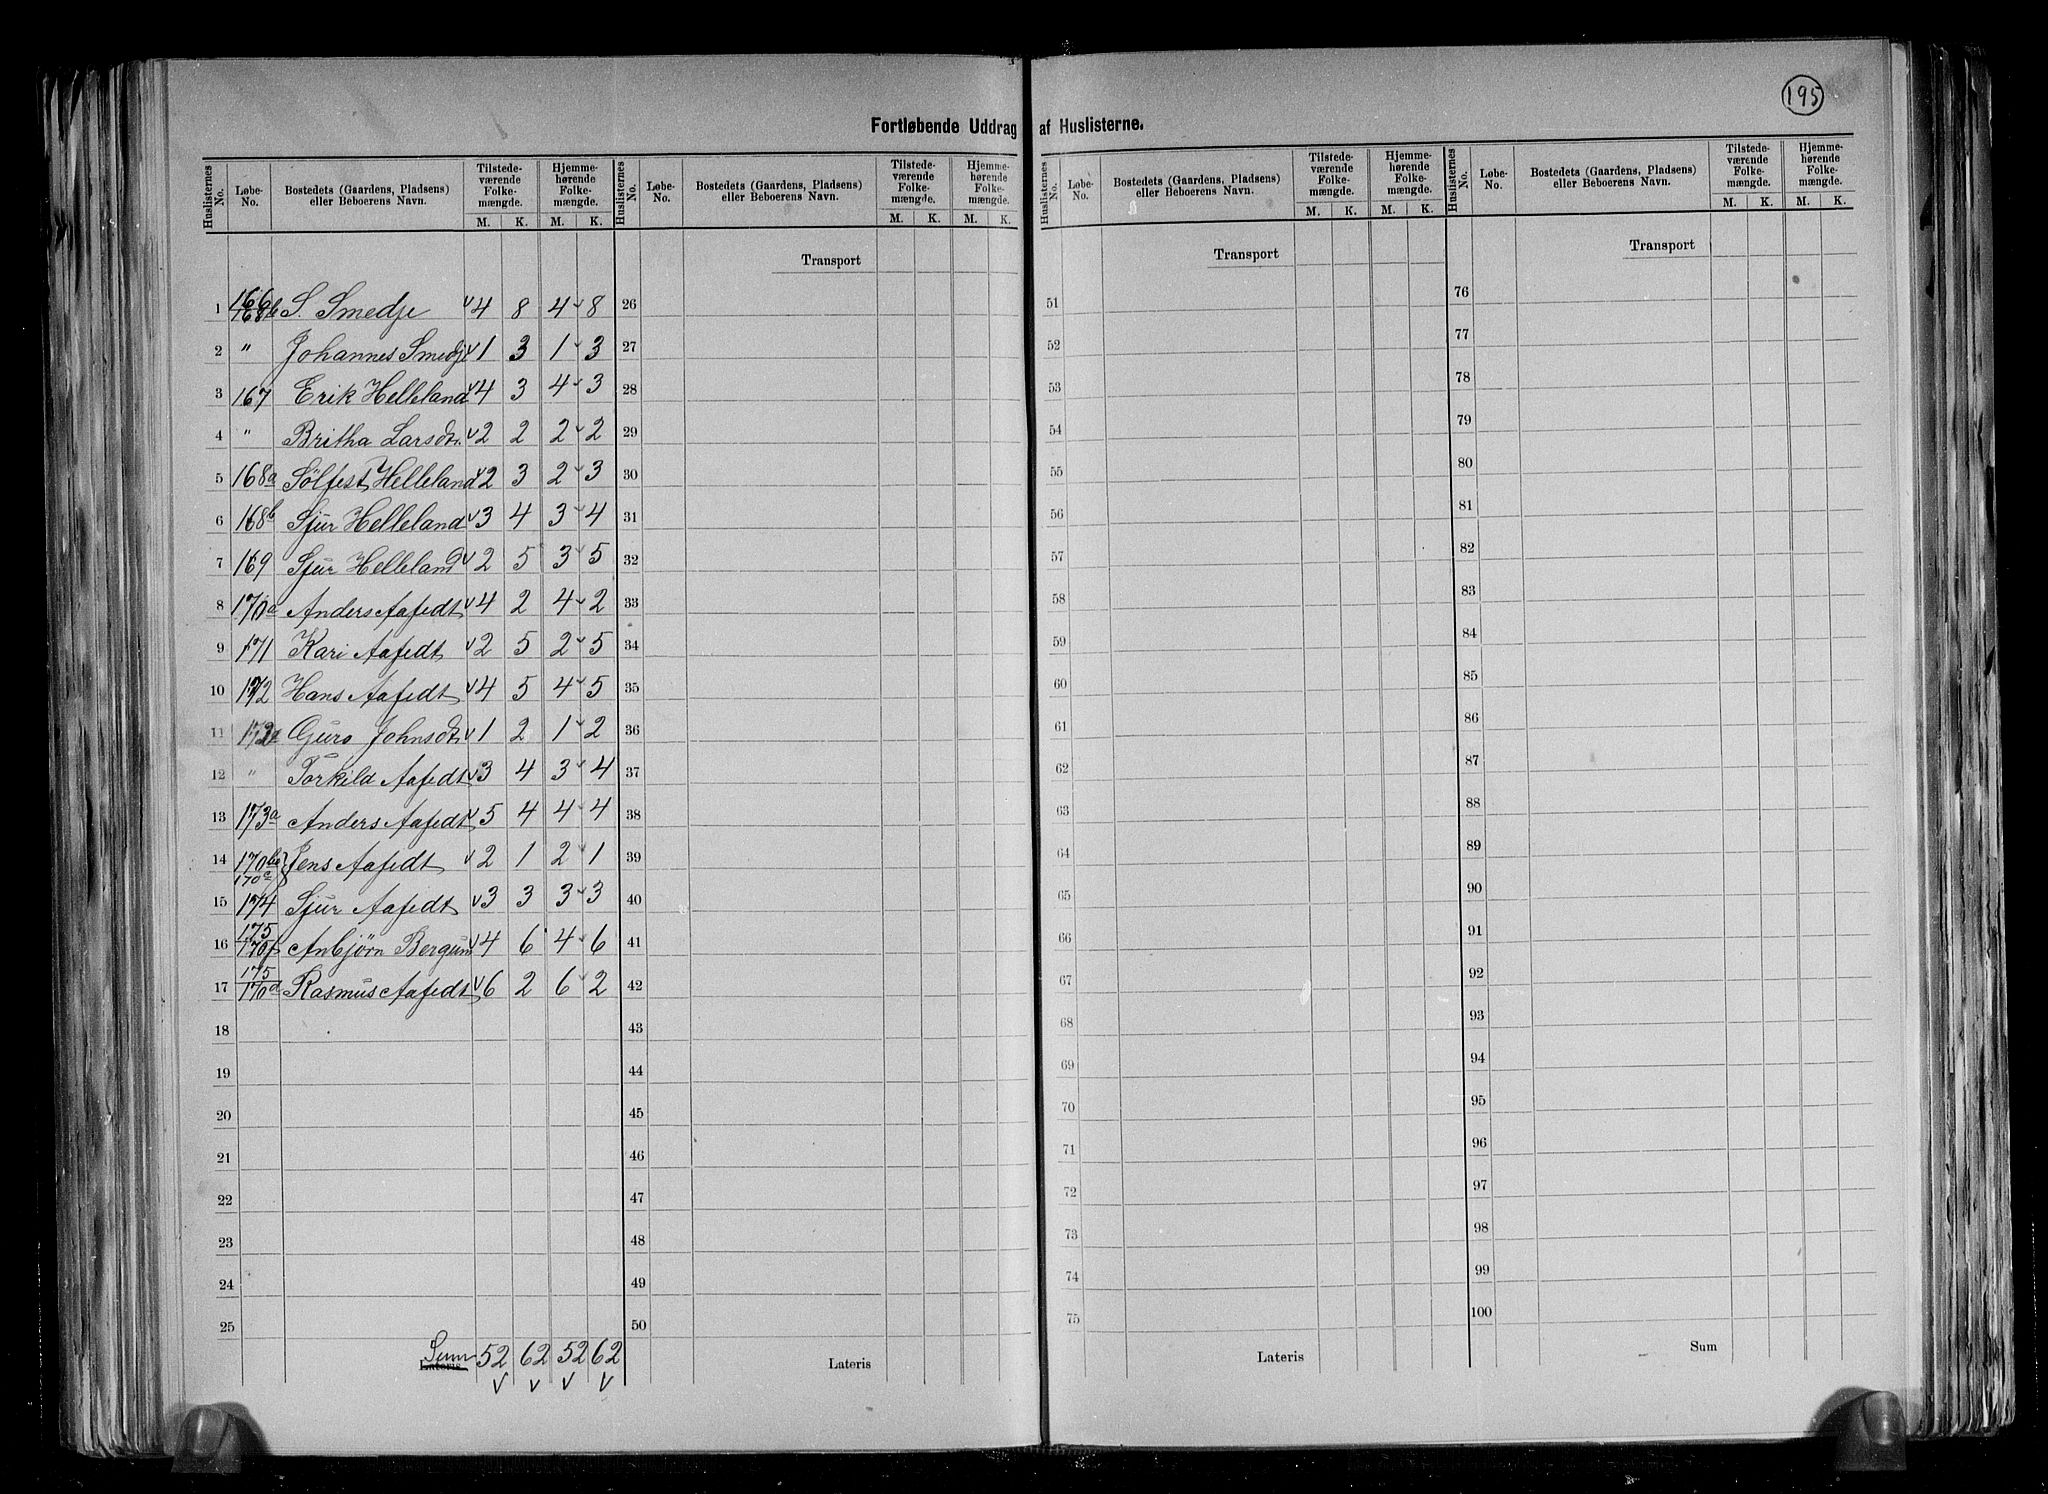 195
Fortløbende Uddrag af Huslisterne.
Huslisternes No. Løbe-No. Bostedets (Gaardens, Pladsens) eller Beboerens Navn. Tilstedeværende Folkemængde. M. K. Hjemmehørende Folkemængde. M. K.
Huslisternes No. Løbe-No. Bostedets (Gaardens, Pladsens) eller Beboerens Navn. Tilstedeværende Folkemængde. M. K. Hjemmehørende Folkemængde. M. K.
Huslisternes No. Løbe-No. Bostedets (Gaardens, Pladsens) eller Beboerens Navn. Tilstedeværende Folkemængde. M. K. Hjemmehørende Folkemængde. M. K.
Huslisternes No. Løbe-No. Bostedets (Gaardens, Pladsens) eller Beboerens Navn. Tilstedeværende Folkemængde. M. K. Hjemmehørende Folkemængde. M. K.
Transport Transport Transport
1 166/168b S. Smedje 4 8 4 8 26 51 76
2 " Johannes Smedje 1 3 1 3 27 52 77
3 167 Erik Helleland 4 3 4 3 28 53 78
4 " Britha Larsdt. 2 2 2 2 29 54 79
5 168a Sölfest Helleland 2 3 2 3 30 55 80
6 168b Sjur Helleland 3 4 3 4 31 56 81
7 169 Sjur Helleland 2 5 3 5 32 57 82
8 170a Anders Aafedt 4 2 4 2 33 58 83
9 171 Kari Aafedt 2 5 2 5 34 59 84
10 172 Hans Aafedt 4 5 4 5 35 60 85
11 Guro Johnsdt. 1 2 1 2 36 61 86
12 " Torkild Aafedt 3 4 3 4 37 62 87
13 173a Anders Aafedt 5 4 4 4 38 63 88
14 170b 170c Jens Aafedt 2 1 2 1 39 64 89
15 174 Sjur Aafedt 3 3 3 3 40 65 90
16 175/170f Anbjörn Bergum 4 6 4 6 41 66 91
17 175/170d Rasmus Aafedt 6 2 6 2 42 67 92
18 43 68 93
19 44 69 94
20 45 70 95
21 46 71 96
22 47 72 97
23 48 73 98
24 49 74 99
25 50 75 100
Sum Lateris 52 62 52 62 Lateris Lateris Sum